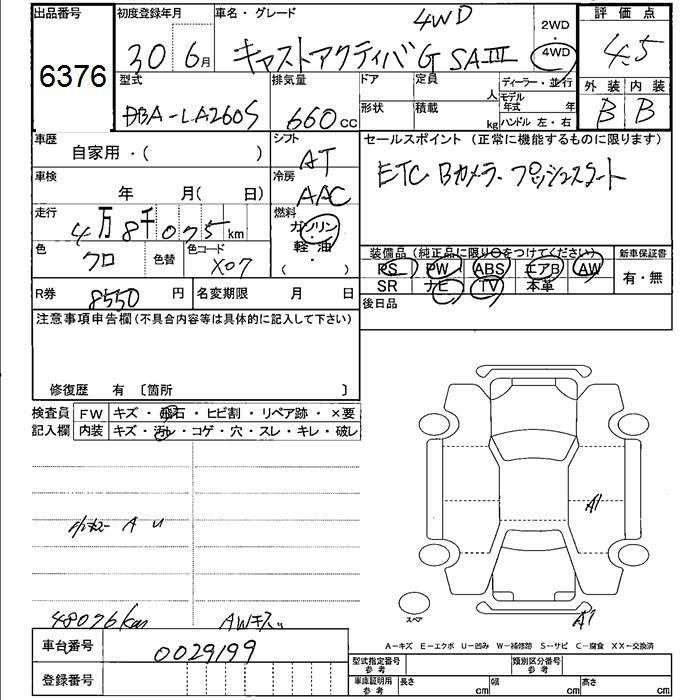 出品番号
6376
初度登録年月
30 6月
車名・グレード
4WD
キャストアクティバG SAIII
2WD
・
4WD
評価点
4.5
外装 内装
B B
型式
DBA-LA260S
排気量
660cc
ドア
形状
定員 人
積載 kg
ディーラー・並行
モデル年式 年
ハンドル 左・右
車歴
自家用・( )
シフト
AT
車検
年 月( 日)
冷房
AAC
走行
4万8千075km
燃料
ガソリン
軽・油
( )
色
クロ
色替
色コード
X07
R券
8550円
名変期限 月 日
セールスポイント(正常に機能するものに限ります)
ETC Bカメラ プッシュスタート
装備品(純正品に限り○をつけてください)
新車保証書
PS PW ABS エアB AW
有・無
SR ナビ TV 本革
後日品
注意事項申告欄(不具合内容等は具体的に記入して下さい)
修復歴 有 〔箇所 〕
検査員 FW キズ・飛石・ヒビ割・リペア跡・×要
記入欄 内装 キズ・汚れ・コゲ・穴・スレ・キレ・破レ
A U
48076km
AWキズ
A1
A1
スペア
車台番号
0029199
登録番号
A-キズ E-エクボ U-凹み W-補修跡 S-サビ C-腐食 XX-交換済
型式指定番号
参考
類別区分番号
参考
車庫証明用
参考
長さ cm
幅 cm
高さ cm